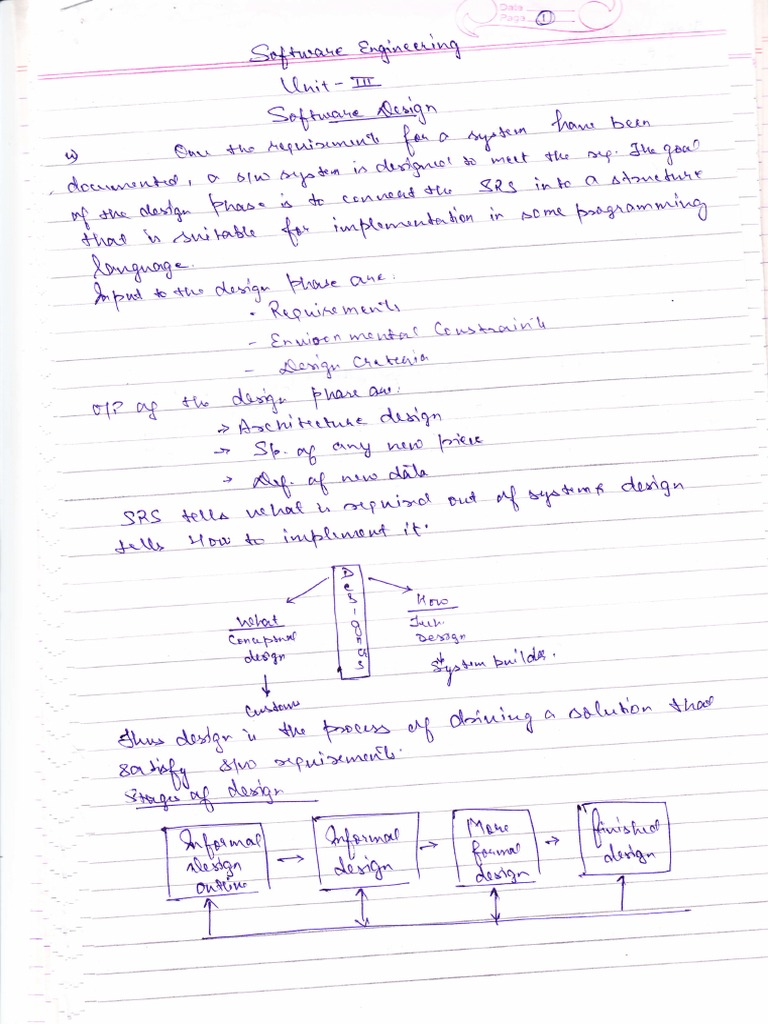 Data
Page 1
Software Engineering
Unit - III
Software Design
Once the requirements for a system have been
documented, a s/w system is designed to meet the req. The goal
of the design phase is to convert the SRS into a structure
that is suitable for implementation in some programming
language.
Input to the design phase are:
• Requirements
- Environmental Constraints
- Design Criteria
O/P of the design phase are:
→ Architecture design
→ Sp. of any new piece
→ Def. of new data
SRS tells what is required out of system & design
tells How to implement it.
Designers
What
Conceptual
design
Customer
How
Tech.
Design
System builder.
Thus design is the process of driving a solution that
satisfy s/w requirements.
Stages of design
Informal
design
outline
Informal
design
More
formal
design
finished
design